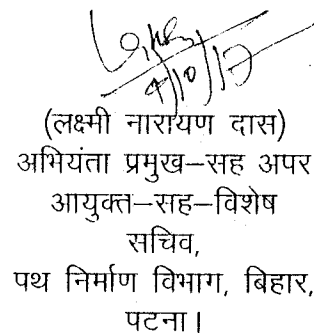 9/10/17
(लक्ष्मी नारायण दास)
अभियंता प्रमुख–सह अपर
आयुक्त–सह–विशेष
सचिव,
पथ निर्माण विभाग, बिहार,
पटना।